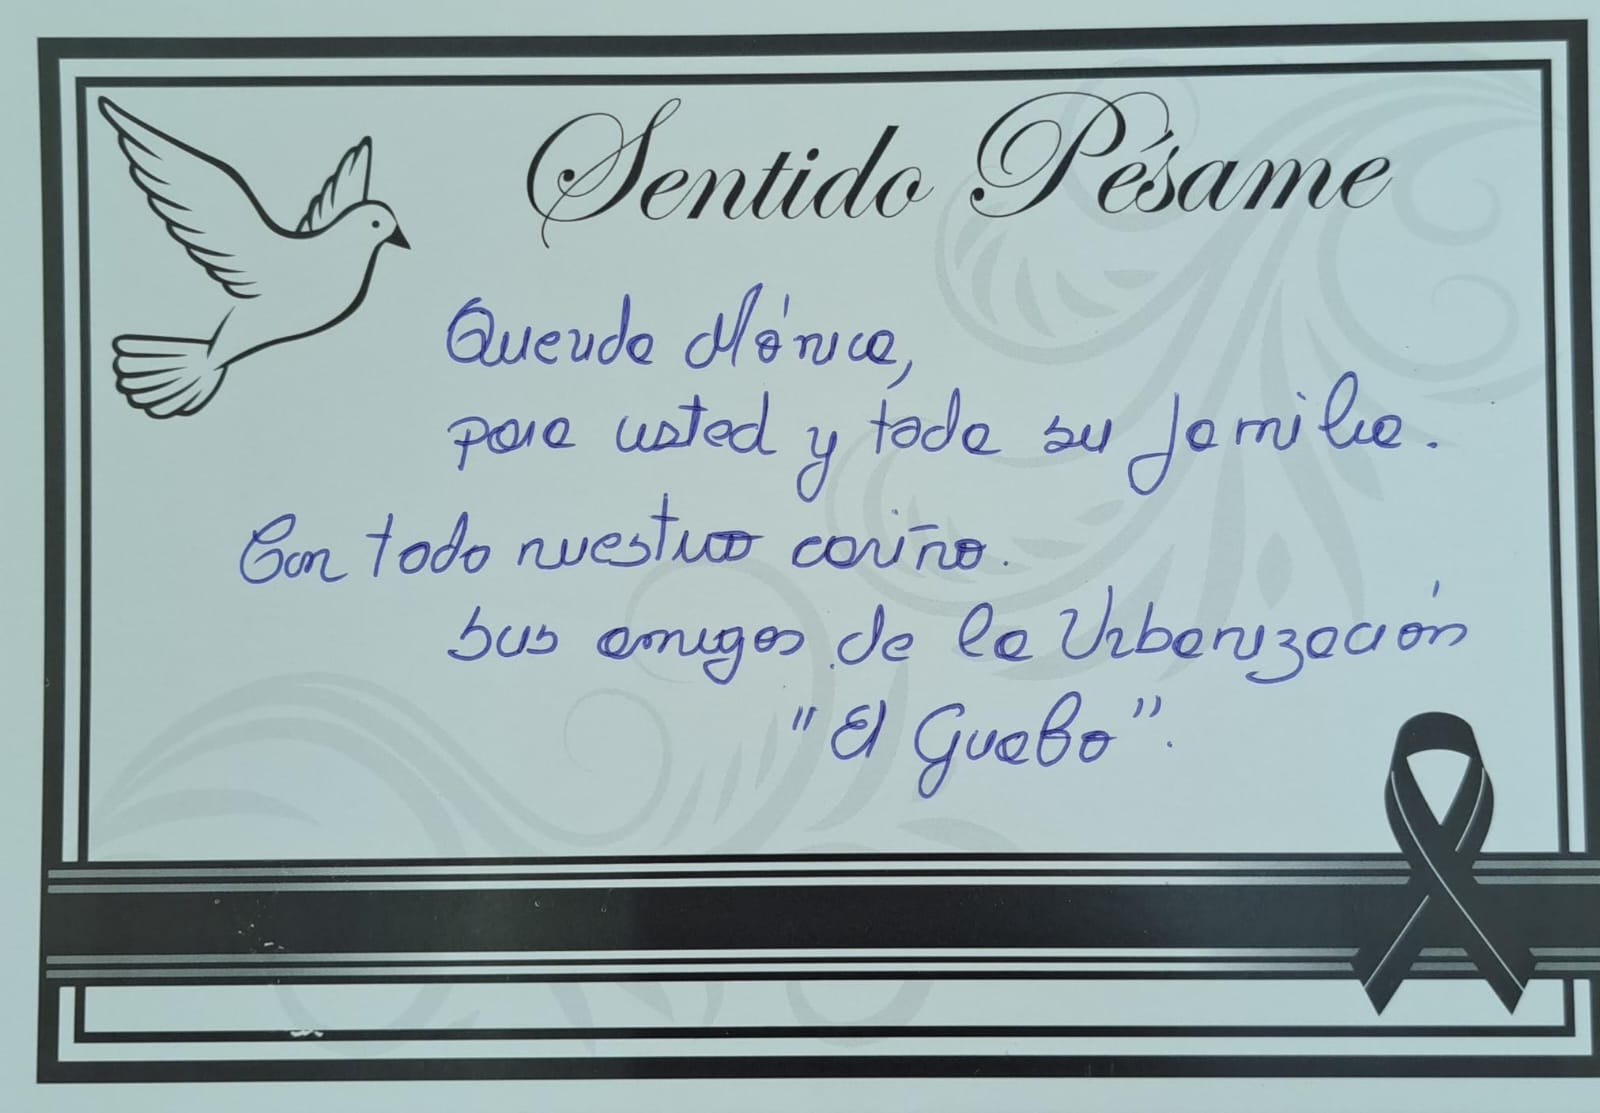 Sentido Pésame
Querida Mónica,
para usted y toda su familia.
Con todo nuestro cariño.
sus amigos de la Urbanización
"El Guabo".